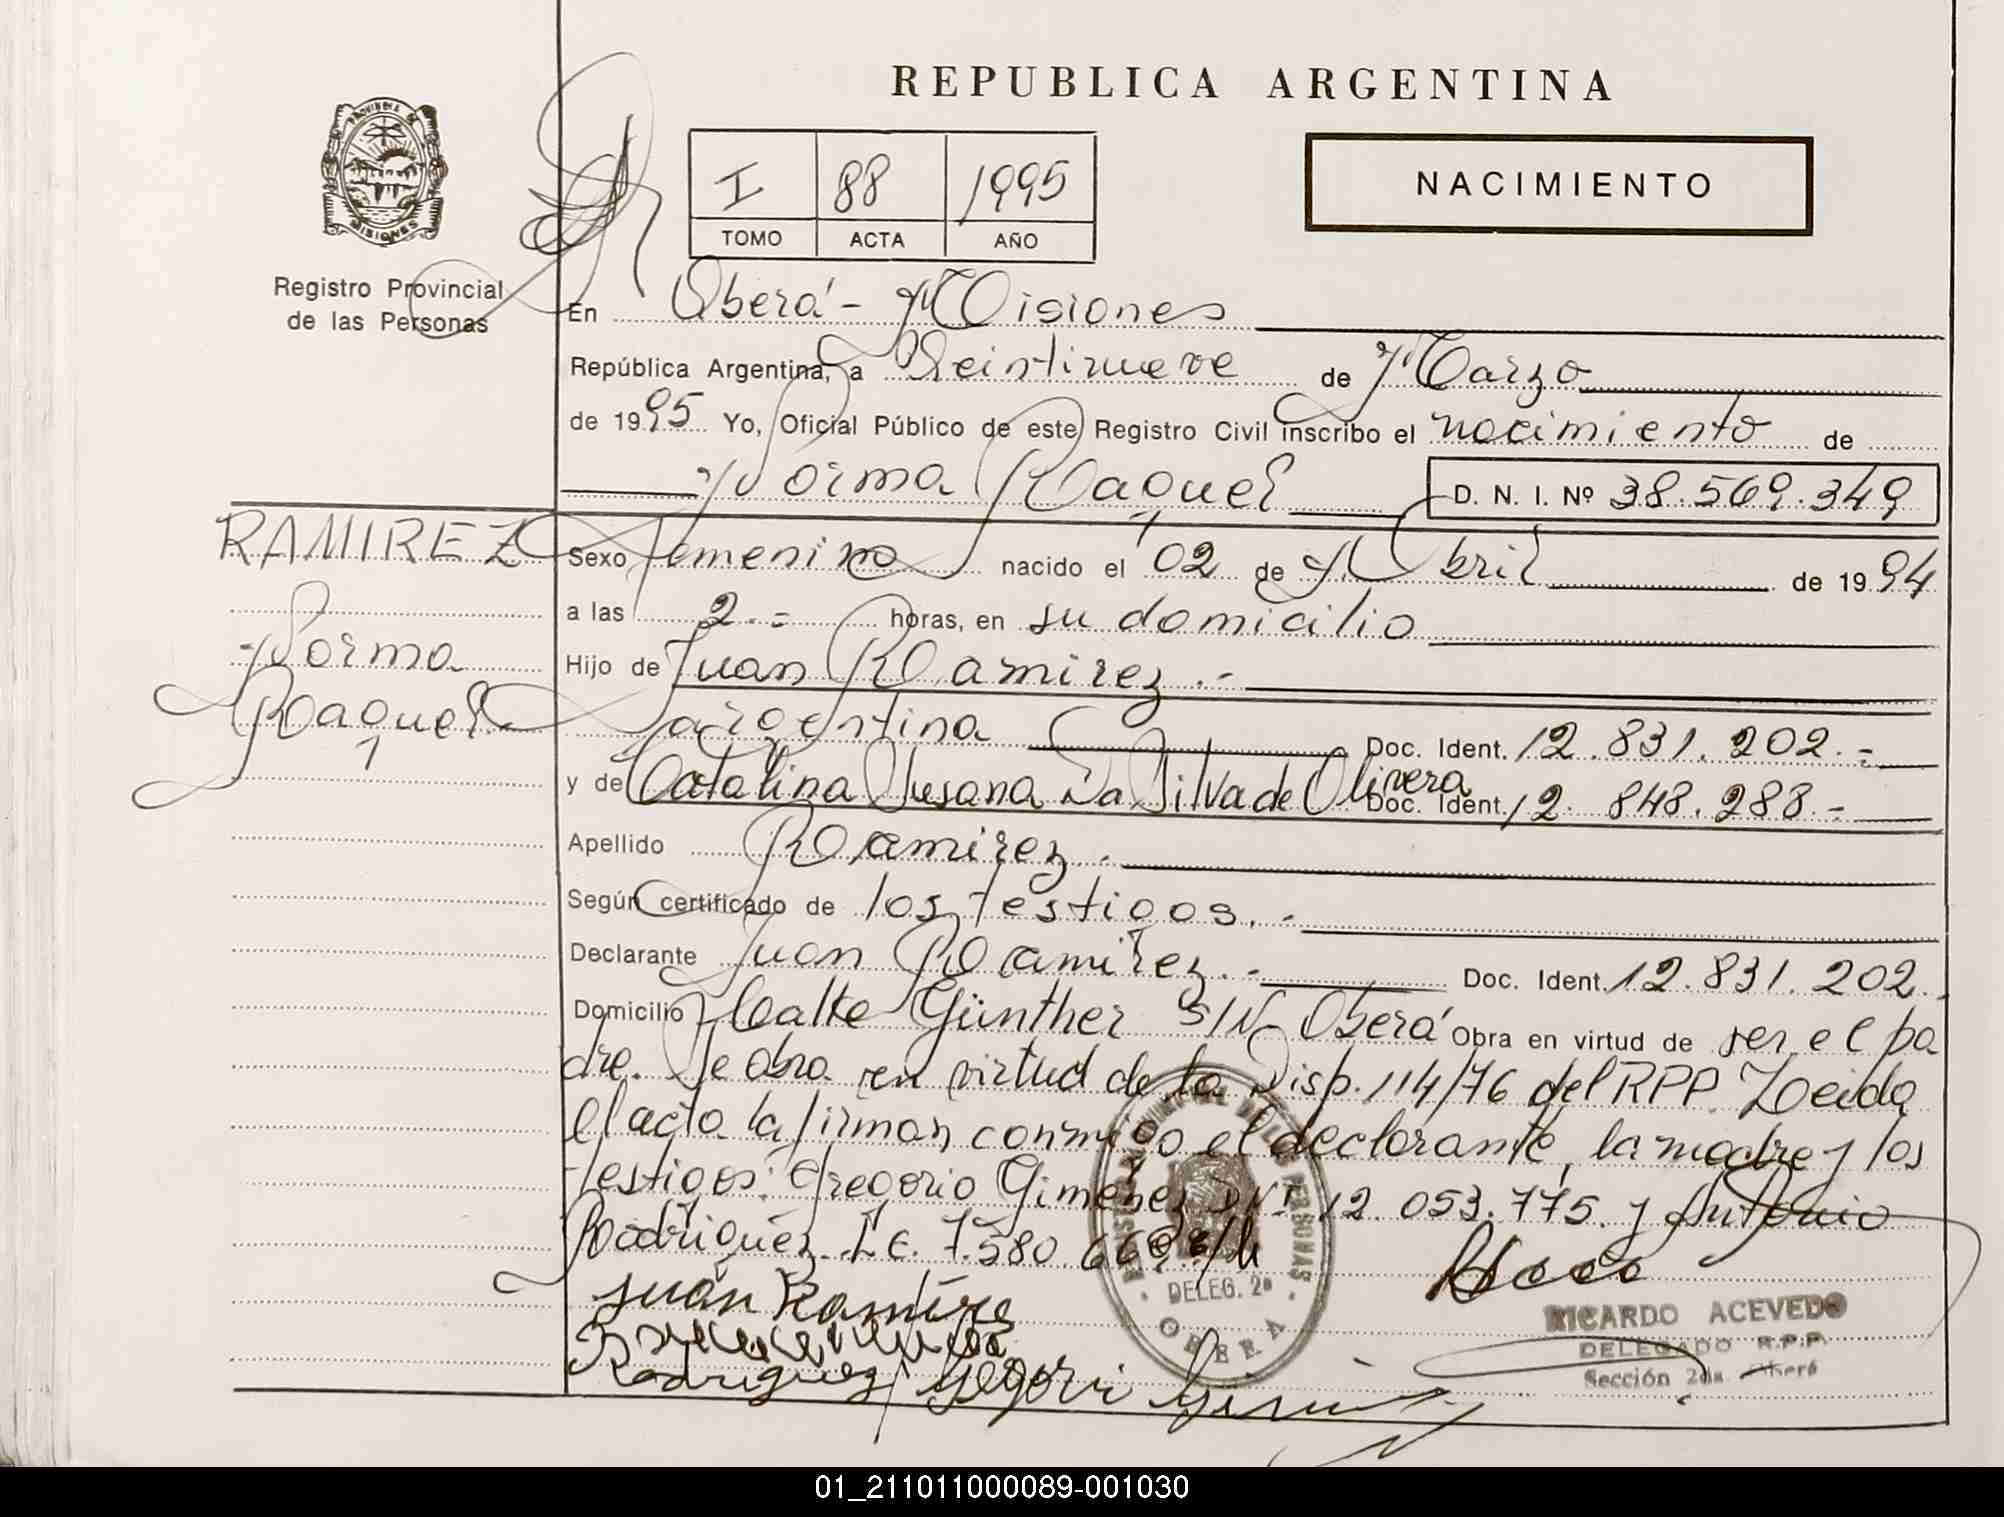 REPUBLICA ARGENTINA
PROVINCIA DE
MISIONES
Registro Provincial
de las Personas
I 88 1995
TOMO ACTA AÑO
NACIMIENTO
En Oberá - Misiones
República Argentina, a Veintinueve de Marzo
de 1995 Yo, Oficial Público de este Registro Civil inscribo el nacimiento de
Norma Raquel D. N. I. Nº 38.569.349
RAMIREZ
Norma
Raquel
Sexo Femenino nacido el 02 de Abril de 1994
a las 2.= horas, en su domicilio
Hijo de Juan Ramirez.-
argentina Doc. Ident. 12.831.202.=
y de Catalina Susana Da Silva de Olivera Doc. Ident. 12.848.288.=
Apellido Ramirez.
Según certificado de los testigos.-
Declarante Juan Ramirez.- Doc. Ident. 12.831.202.
Domicilio Calle Günther S/N- Oberá Obra en virtud de ser el pa
dre. Se obra en virtud de la Disp. 114/76 del RPP. Leida
el acta la firman conmigo el declarante, la madre y los
testigos: Gregorio Gimenez DNI 12.053.775. y Antonio
Rodriguez L.E. 7.580
Juan Ramires
Rodriguez
DELEG. 2ª
OBERA
RICARDO ACEVEDO
DELEGADO R.P.P.
Sección 2da Oberá
01_211011000089-001030